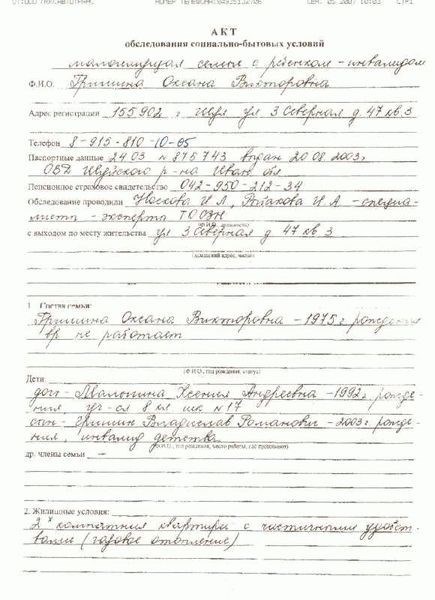 АКТ
обследования социально-бытовых условий
малоимущая семья с ребенком-инвалидом
Ф.И.О. Гришина Оксана Викторовна
Адрес регистрации 155902 г Шуя ул 3 Северная д 47 кв 3
Телефон 8-915-810-10-65
Паспортные данные 24 03 N 875743 выдан 20.08.2003г
ОВД Шуйского р-на Иван. обл
Пенсионное страховое свидетельство 042-950-212-34
Обследование проводили Носкова И.Л, И А - специа-
листы-эксперты ТОСЗН
с выходом по месту жительства ул 3 Северная д 47 кв 3
(домашний адрес, число)
1. Состав семьи:
Гришина Оксана Викторовна - 1975 г рождения
вр не работает
(Ф.И.О., год рождения, статус)
Дети:
дочь - Малыгина Ксения Андреевна - 1992 г. рожде-
ния, уч-ся 8 кл шк N 17
сын - Гришин Владислав Романович - 2003 г рожде-
ния, инвалид детства
др. члены семьи
2. Жилищные условия:
2х комнатная квартира с частичными удобст-
вами (газовое отопление)